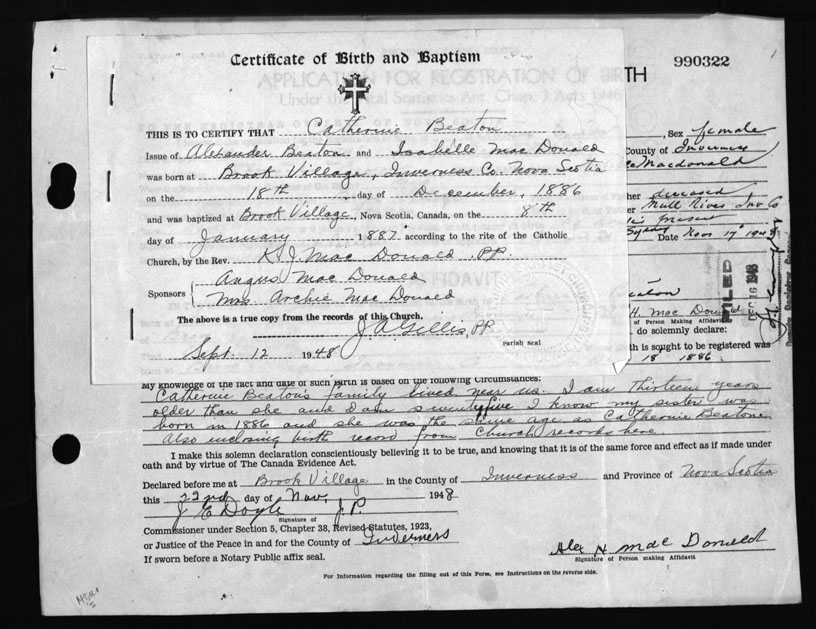 Certificate of Birth and Baptism
APPLICATION FOR REGISTRATION OF BIRTH
990322
THIS IS TO CERTIFY THAT Catherine Beaton
Issue of Alexander Beaton and Isabelle Mac Donald
was born at Brook Village, Inverness Co. Nova Scotia
on the 18th day of December, 1886
and was baptized at Brook Village, Nova Scotia, Canada, on the 8th
day of January 1887 according to the rite of the Catholic
Church, by the Rev. K. J. Mac Donald, P.P.
Sponsors { Angus Mac Donald
Mrs Archie Mac Donald
The above is a true copy from the records of this Church.
J. A. Gillis, P.P.
Parish seal
Sept. 12 1948
, Sex female
County of Inverness
Macdonald
deceased
Mull River Inv Co
present
Sydney Date Nov 17 1948
FILED
DEC 1948
H. Mac Donald
of Person Making Affidavit
do solemnly declare:
th is sought to be registered was
18 1886
My knowledge of the fact and date of such birth is based on the following circumstances:
Catherine Beatons family lived near us. I am thirteen years
older than she and I am seventyfive I know my sister was
born in 1886 and she was the same age as Catherine Beatone
Also inclosing birth record from Church records here
I make this solemn declaration conscientiously believing it to be true, and knowing that it is of the same force and effect as if made under
oath and by virtue of The Canada Evidence Act.
Declared before me at Brook Village in the County of Inverness and Province of Nova Scotia
this 22nd day of Nov, 1948
J E Doyle J.P
Signature of
Commissioner under Section 5, Chapter 38, Revised Statutes, 1923,
or Justice of the Peace in and for the County of Inverness
If sworn before a Notary Public affix seal.
Alex H Mac Donald
Signature of Person making Affidavit
For Information regarding the filling out of this Form, see Instructions on the reverse side.